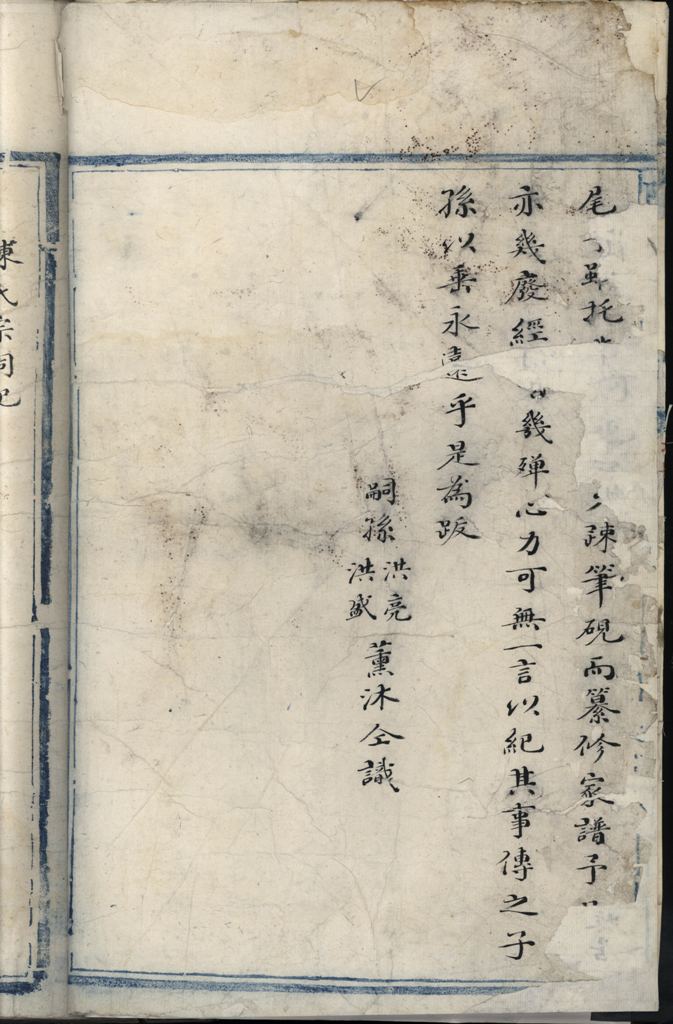 尾虽托疎筆硯而纂修家譜予
亦幾廢經幾殫心力可無一言以紀其事傳之子
孫以垂永遠乎是為跋
嗣孫洪亮洪盛薰沐仝識
陳氏宗祠記